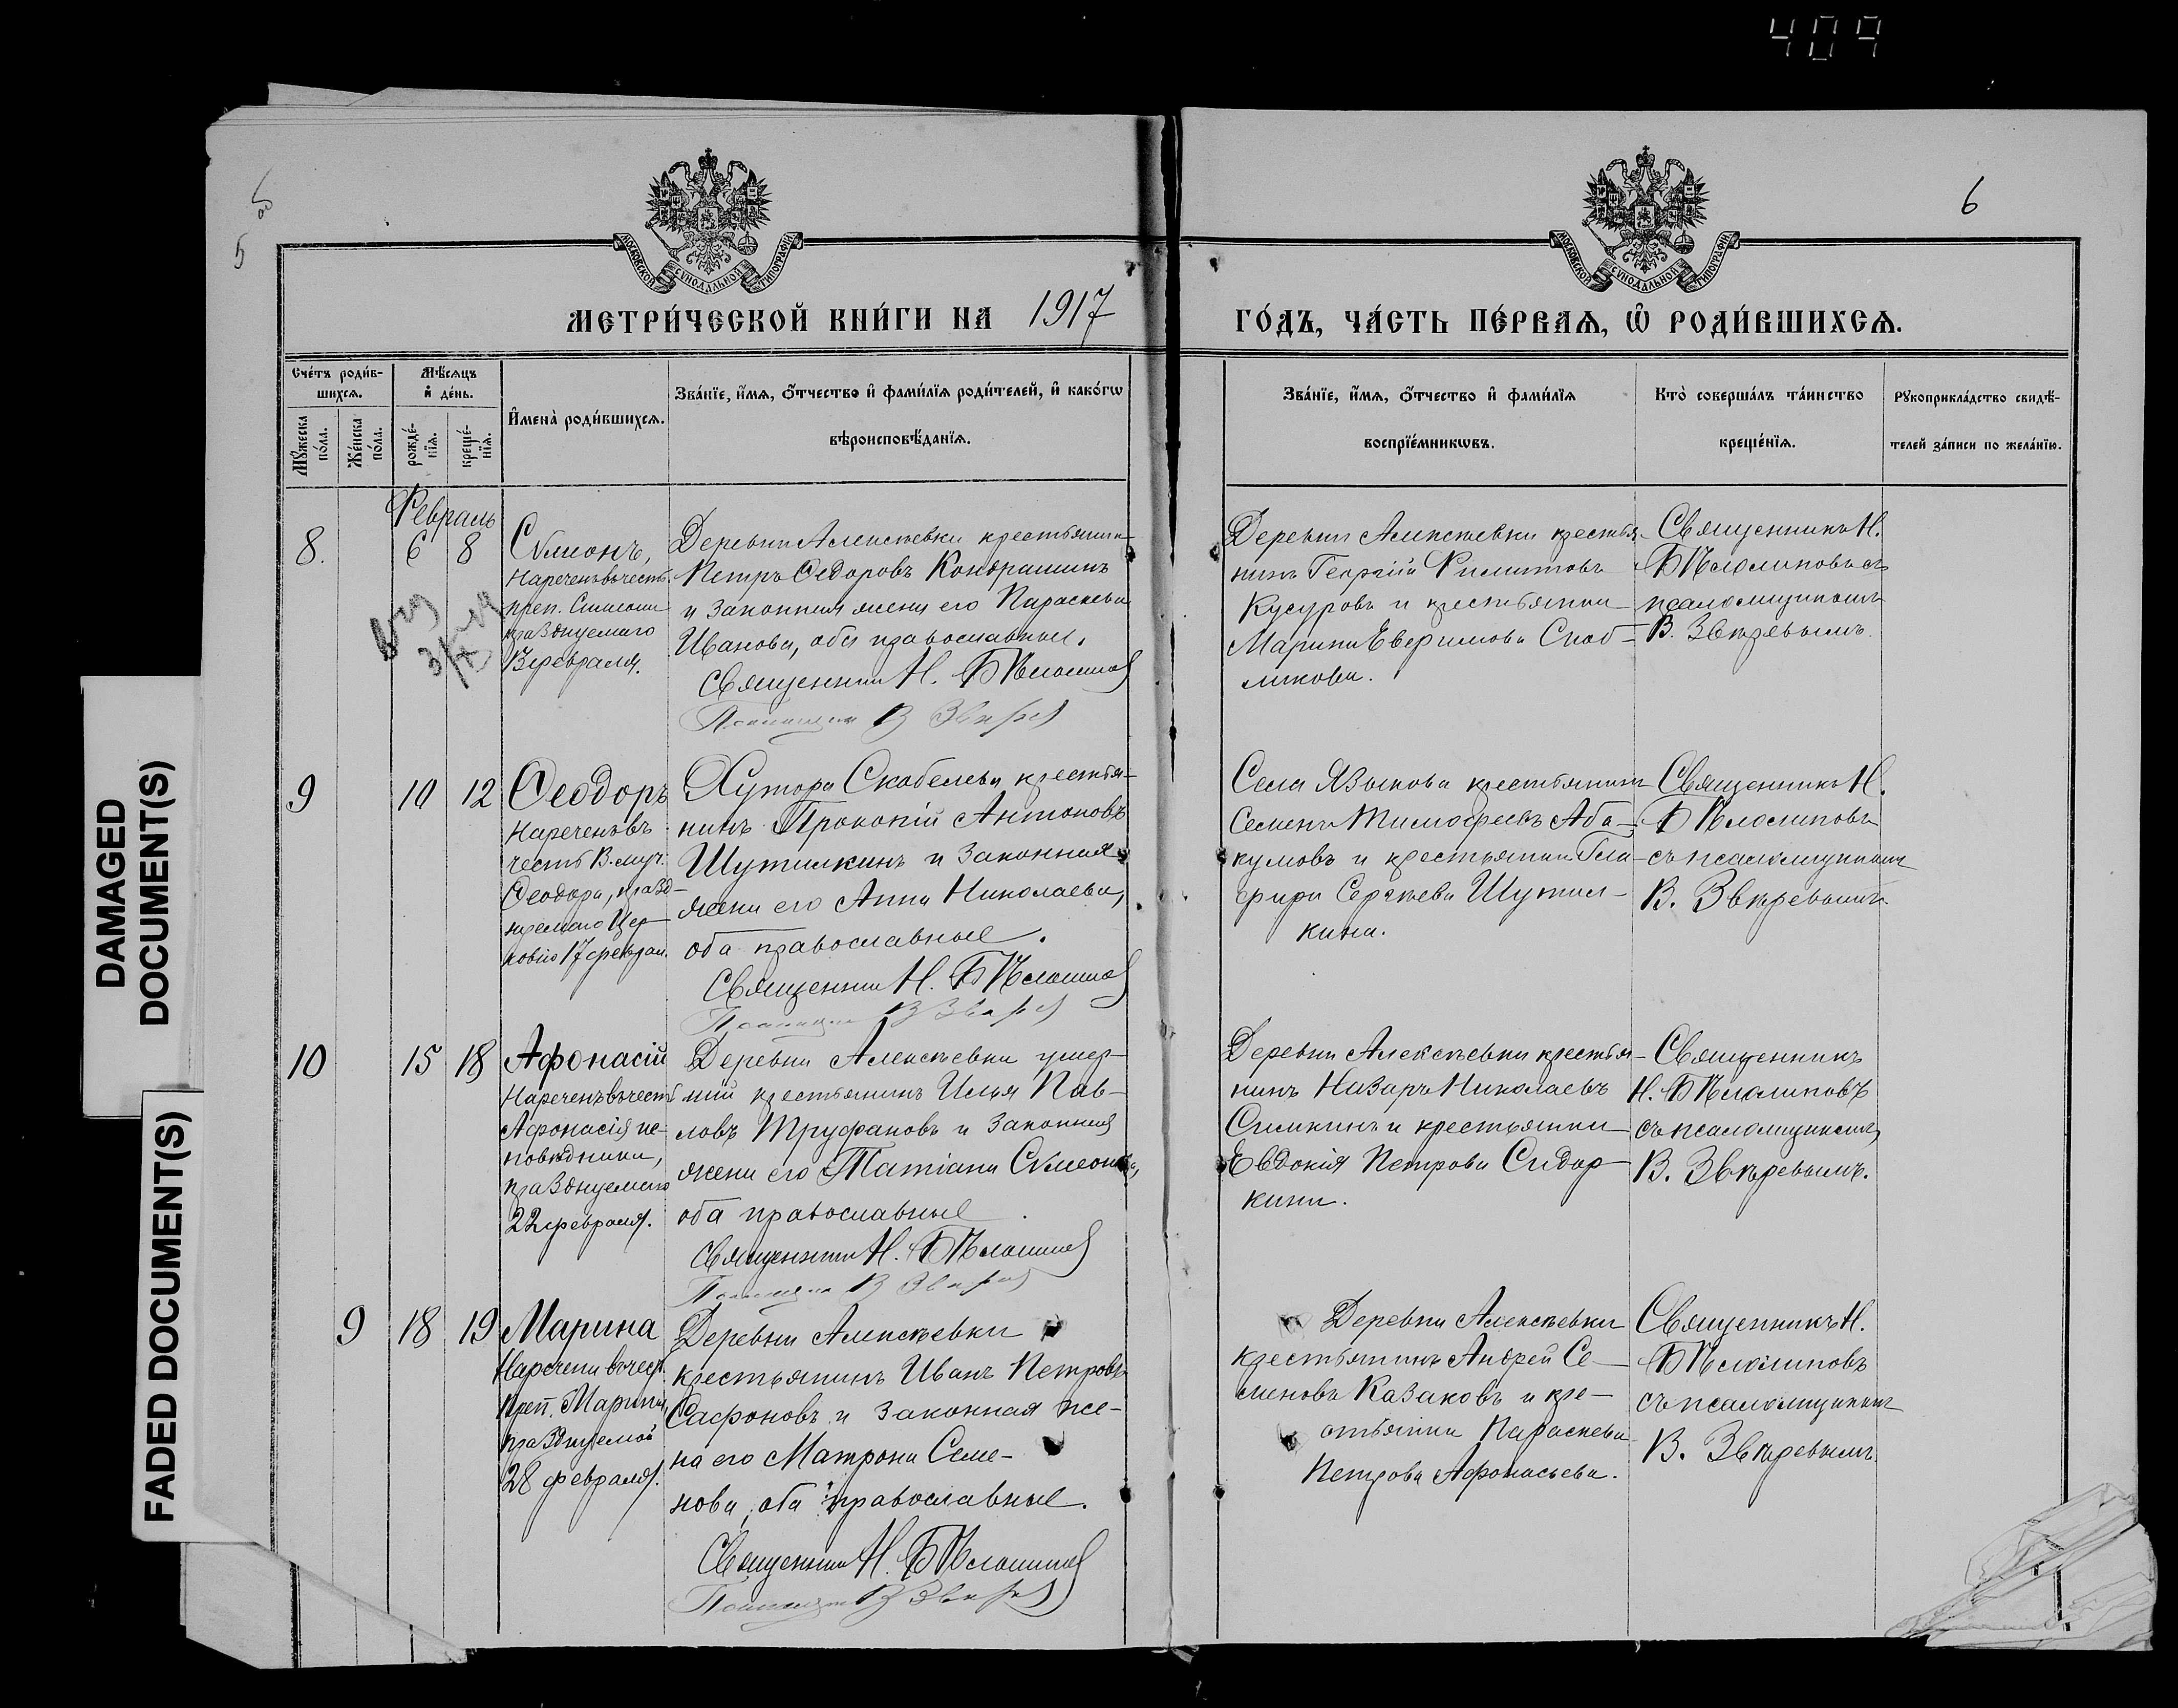 409
DAMAGED
DOCUMENT(S)
FADED DOCUMENT(S)
5
6
МОСКОВСКОЙ СѴНОДАЛЬНОЙ ТИПОГРАФІИ
МОСКОВСКОЙ СѴНОДАЛЬНОЙ ТИПОГРАФІИ
МЕТРИ́ЧЕСКОЙ КНИ́ГИ НА 1917
ГО́ДЪ, ЧА́СТЬ ПЕ́РВАѦ, Ѽ РОДИ́ВШИХСѦ.
Сче́тъ роди́в-
шихсѧ.
Мꙋ́жеска по́ла.
Же́нска по́ла.
Мѣ́сѧцъ
и҆ де́нь.
рожде́-
нїѧ.
креще́-
нїѧ.
И҆мена̀ роди́вшихсѧ.
Зва́нїе, и҆́мѧ, ѻ҆́тчество и҆ фами́лїѧ роди́телей, и҆ како́гѡ
вѣроисповѣ́данїѧ.
Зва́нїе, и҆́мѧ, ѻ҆́тчество и҆ фами́лїѧ
воспрїе́мникѡвъ.
Кто̀ соверша́лъ та́инство
креще́нїѧ.
Рꙋкоприкла́дство свидѣ́-
телей за́писи по жела́нїю.
Февраль
8. 6 8
Сѵмеонъ,
Нареченъ въ честь
преп. Симеона
празднуемаго
13 февраля.
Деревни Алексѣевки крестьянинъ
Петръ Ѳедоровъ Кондрашинъ
и законная жена его Параскева
Иванова, оба православные.
Священникъ Н. Бѣлолиповъ
Псаломщикъ В Звѣревъ
Деревни Алексѣевки крестья-
нинъ Георгій Филиповъ
Кусуровъ и крестьянка
Марина Евфимова Скоб-
ликова.
Священникъ Н.
Бѣлолиповъ съ
псаломщикомъ
В. Звѣревымъ.
9 10 12
Ѳеодоръ
Нареченъ въ
честь В. муч.
Ѳеодора, празд-
нуемаго Цер-
ковію 17 феврал.
Хутора Скобелева крестья-
нинъ Прокопій Антоновъ
Шутилкинъ и законная
жена его Анна Николаева,
оба православные.
Священникъ Н. Бѣлолиповъ
Псаломщикъ В Звѣревъ
Села Языкова крестьянинъ
Семенъ Тимофеевъ Аба-
кумовъ и крестьянка Гла-
фира Сергѣева Шутил-
кина.
Священникъ Н.
Бѣлолиповъ
съ псаломщикомъ
В. Звѣревымъ.
10 15 18
Афонасій
Нареченъ въ честь
Афонасія ис-
повѣдника,
празднуемаго
22 февраля.
Деревни Алексѣевки умер-
шій крестьянинъ Илья Пав-
ловъ Труфановъ и законная
жена его Татіана Сѵмеонова,
оба православные
Священникъ Н. Бѣлолиповъ
Псаломщикъ В Звѣревъ
Деревни Алексѣевки крестья-
нинъ Назаръ Николаевъ
Симкинъ и крестьянка
Евдокія Петрова Сидор-
кина.
Священникъ
Н. Бѣлолиповъ
съ псаломщикомъ
В. Звѣревымъ.
9 18 19
Марина
Наречена въ честь
преп. Марины,
празднуемой
28 февраля.
Деревни Алексѣевки
крестьянинъ Иванъ Петровъ
Сафоновъ и законная же-
на его Матрона Семе-
нова, оба православные.
Священникъ Н. Бѣлолиповъ
Псаломщикъ В Звѣревъ
Деревни Алексѣевки
крестьянинъ Андрей Се-
меновъ Казаковъ и кре-
стьянка Параскева
Петрова Афонасьева.
Священникъ Н.
Бѣлолиповъ
съ псаломщикомъ
В. Звѣревымъ.